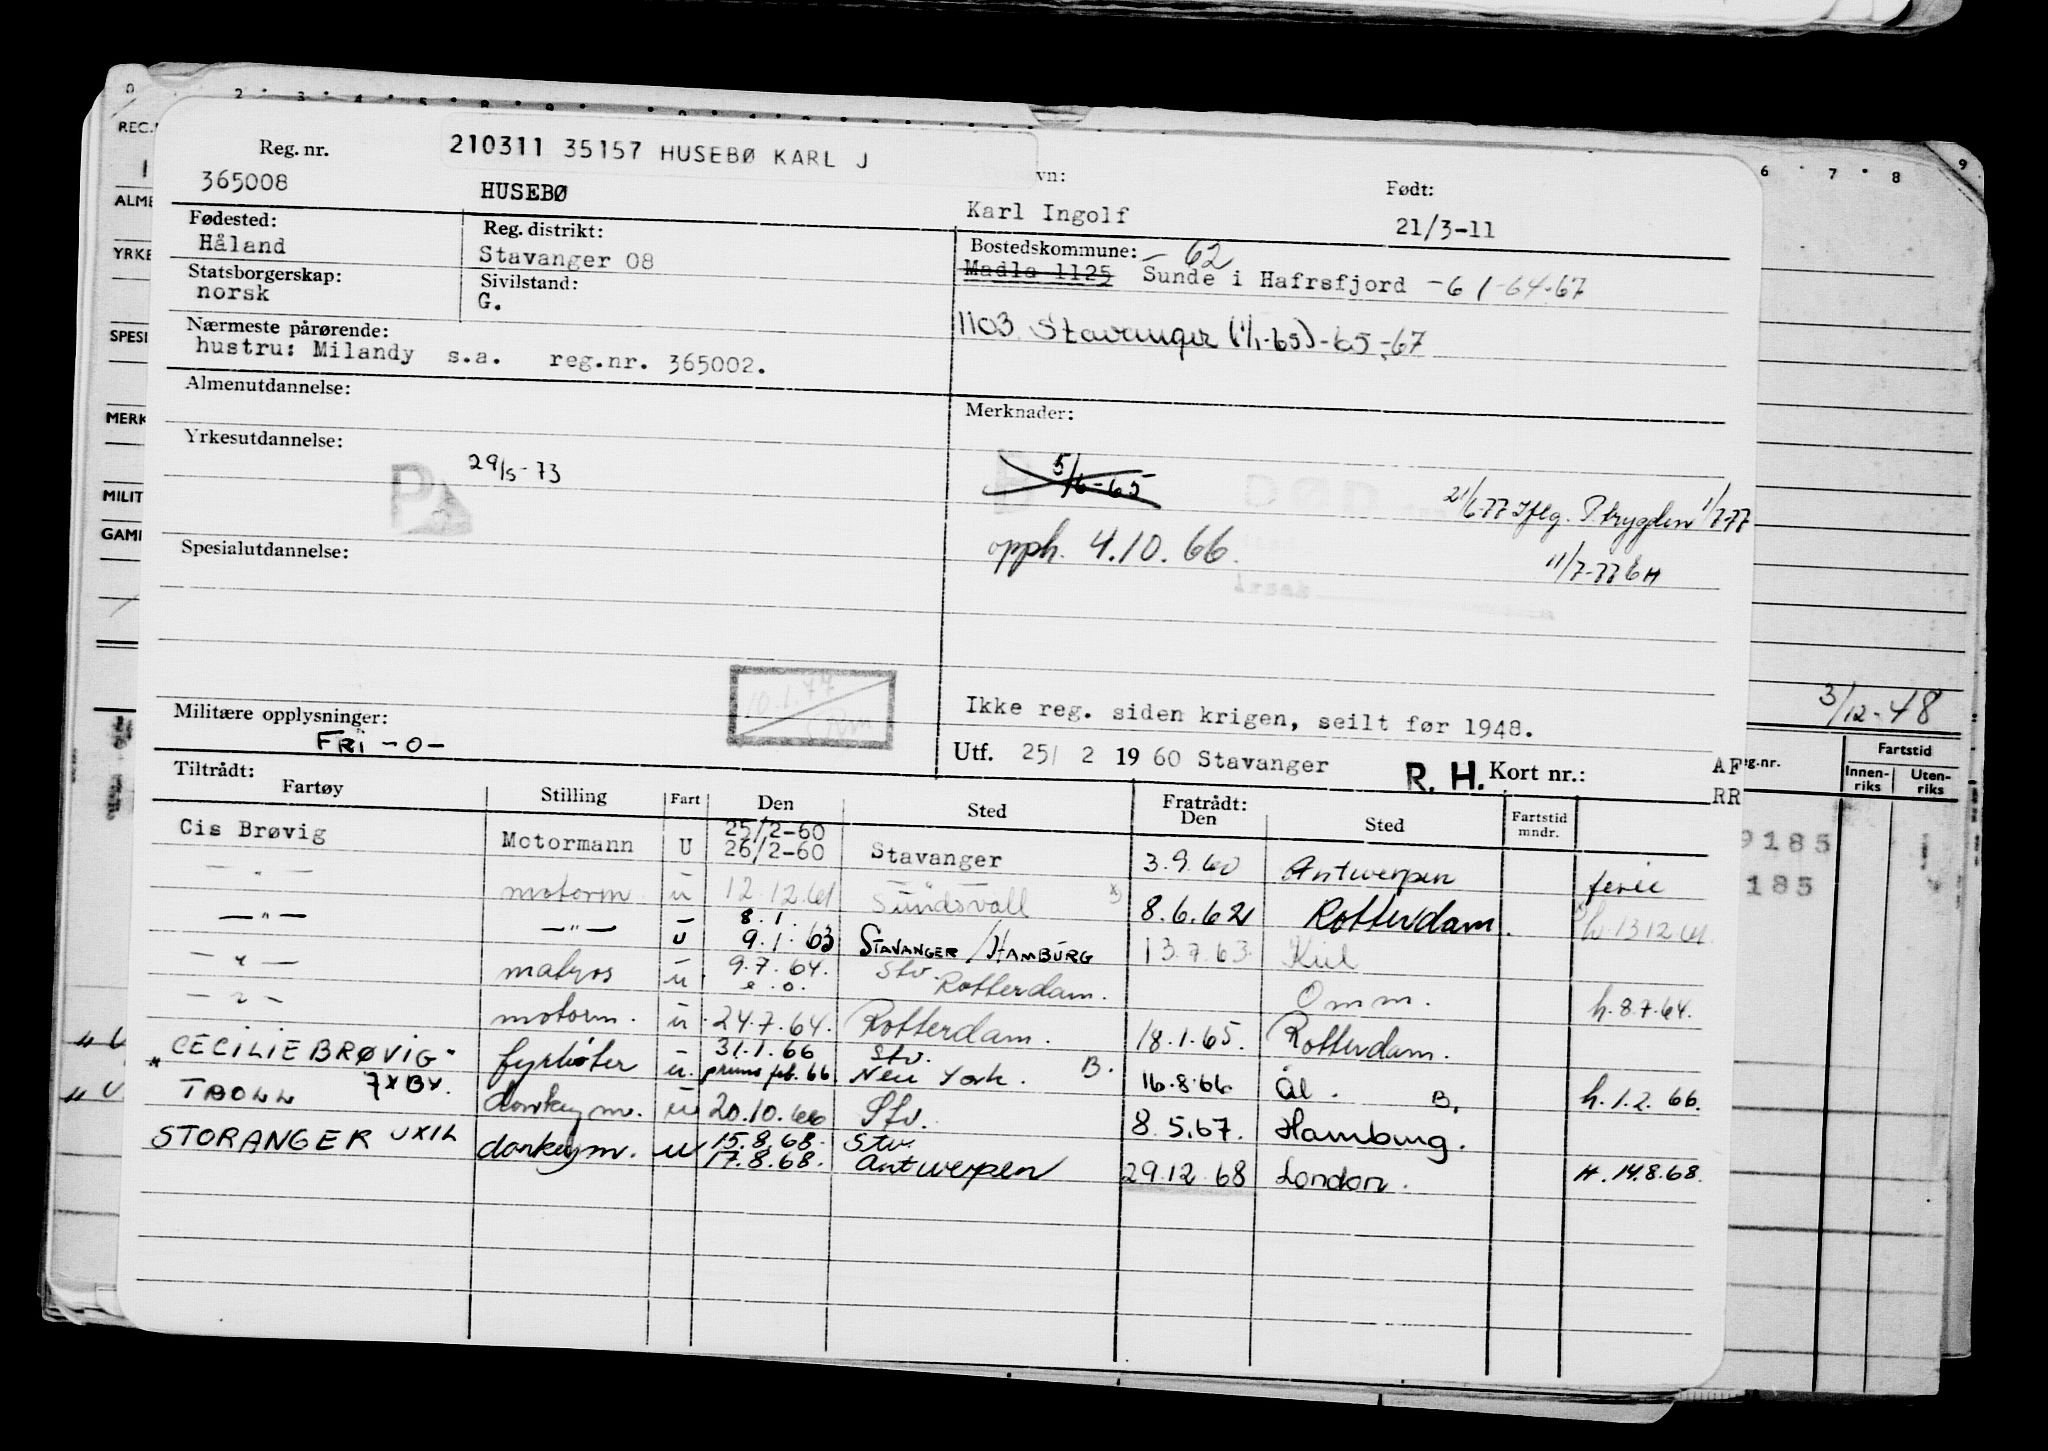 210311 35157 HUSEBØ KARL J
Reg. nr. vn: Født:
365008 HUSEBØ Karl Ingolf 21/3-11
Fødested: Reg. distrikt: Bostedskommune: -62
Håland Stavanger 08 Madla 1125 Sunde i Hafrsfjord -61-64-67
Statsborgerskap: Sivilstand:
norsk G.
Nærmeste pårørende: 1103 Stavanger (1/1-65)-65-67
hustru: Milandy s.a. reg.nr. 365002.
Almenutdannelse: Merknader:
Yrkesutdannelse:
29/5-73 5/6-65
21/6-77 Iflg. P.trygden 1/7-77
opph. 4.10.66.
11/7-77 bH
Spesialutdannelse:
10.1.77
Ikke reg. siden krigen, seilt før 1948.
3/12-48
Militære opplysninger:
FRI -0-
Utf. 25/ 2 1960 Stavanger R. H. Kort nr.: AF
RR
Tiltrådt: Fratrådt:
Fartøy Stilling Fart Den Sted Den Sted Fartstid mndr.
Cis Brøvig Motormann U 25/2-60 26/2-60 Stavanger 3.9.60 Antwerpen ferie
- " - motorm. u 12.12.61 Sundsvall x) 8.6.62 Rotterdam. x) h.13.12.61.
- " - - " - u 8.1. 9.1.63 STAVANGER / HAMBURG 13.7.63 Kiel
- " - matros u. 9.7.64. s.o. Stv. Rotterdam. Omm. h.8.7.64.
- " - motorm. u. 24.7.64. Rotterdam. 18.1.65. Rotterdam.
"CECILIE BRØVIG" fyrbøter u. 31.1.66 primo feb. 66. Stv. New York. B. 16.8.66 Ål. B. h.1.2.66.
TROLL donkeym. u 20.10.66 Stv. 8.5.67. Hamburg.
STORANGER UXIL donkeym. u 15.8.68. 17.8.68. Stv. Antwerpen 29.12.68 London. H.14.8.68.
REC.
ALME
YRKE
SPESI
MERK
MILIT
GAMI
g.nr. Fartstid
Innenriks Utenriks
9185
185